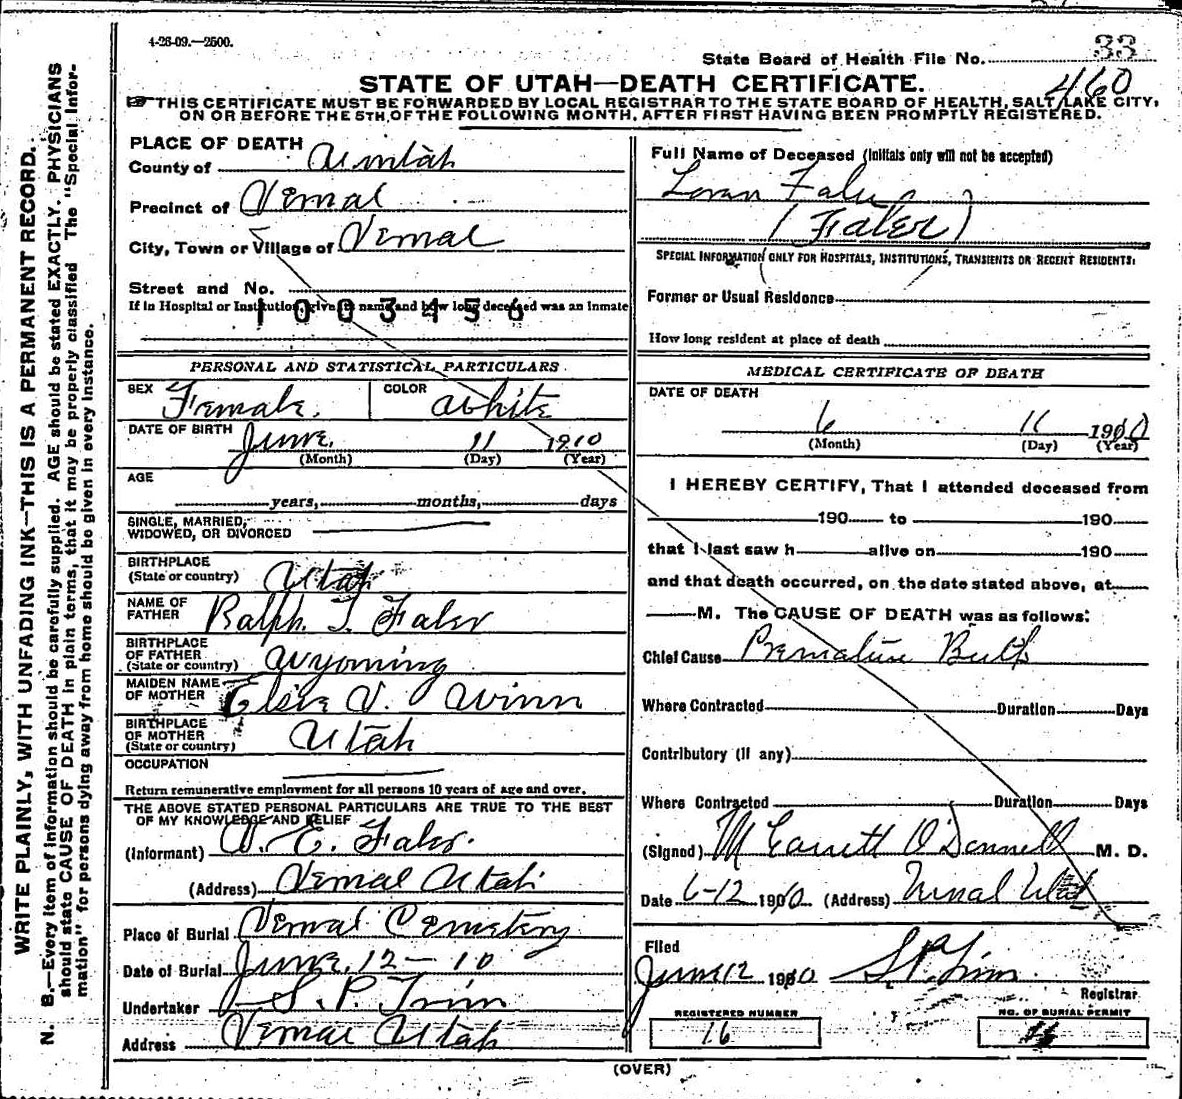 4-26-09.—2500.
State Board of Health File No. 33
460
STATE OF UTAH—DEATH CERTIFICATE.
THIS CERTIFICATE MUST BE FORWARDED BY LOCAL REGISTRAR TO THE STATE BOARD OF HEALTH, SALT LAKE CITY,
ON OR BEFORE THE 5TH, OF THE FOLLOWING MONTH, AFTER FIRST HAVING BEEN PROMPTLY REGISTERED.
WRITE PLAINLY, WITH UNFADING INK—THIS IS A PERMANENT RECORD.
N. B.—Every item of information should be carefully supplied. AGE should be stated EXACTLY. PHYSICIANS
should state CAUSE OF DEATH in plain terms, that it may be properly classified The "Special Infor-
mation" for persons dying away from home should be given in every instance.
PLACE OF DEATH
County of Uintah
Precinct of Vernal
City, Town or Village of Vernal
Street and No.
If in Hospital or Institution, give its name and how long deceased was an inmate
1003456
PERSONAL AND STATISTICAL PARTICULARS
SEX Female. COLOR White
DATE OF BIRTH June 11 1910
(Month) (Day) (Year)
AGE
years, months, days
SINGLE, MARRIED,
WIDOWED, OR DIVORCED
BIRTHPLACE
(State or country) Utah
NAME OF
FATHER Ralph T. Faler
BIRTHPLACE
OF FATHER
(State or country) Wyoming
MAIDEN NAME
OF MOTHER Elsie V. Winn
BIRTHPLACE
OF MOTHER
(State or country) Utah
OCCUPATION
Return remunerative employment for all persons 10 years of age and over.
THE ABOVE STATED PERSONAL PARTICULARS ARE TRUE TO THE BEST
OF MY KNOWLEDGE AND BELIEF
(Informant) E. Faler.
(Address) Vernal Utah
Place of Burial Vernal Cemetery
Date of Burial June 12 - 10
Undertaker S. P. Trim
Address Vernal Utah
Full Name of Deceased (Initials only will not be accepted)
Loran Faler
(Faler)
SPECIAL INFORMATION ONLY FOR HOSPITALS, INSTITUTIONS, TRANSIENTS OR RECENT RESIDENTS:
Former or Usual Residence
How long resident at place of death
MEDICAL CERTIFICATE OF DEATH
DATE OF DEATH
6 11 1910
(Month) (Day) (Year)
I HEREBY CERTIFY, That I attended deceased from
190 to 190
that I last saw h alive on 190
and that death occurred, on the date stated above, at
M. The CAUSE OF DEATH was as follows:
Chief Cause Premature Birth
Where Contracted Duration Days
Contributory (if any)
Where Contracted Duration Days
(Signed) M Garrett O'Donnell M. D.
Date 6-12 1910 (Address) Vernal Utah
Filed
June 12 1910 S. P. Trim
Registrar
REGISTERED NUMBER
16
NO. OF BURIAL PERMIT
(OVER)